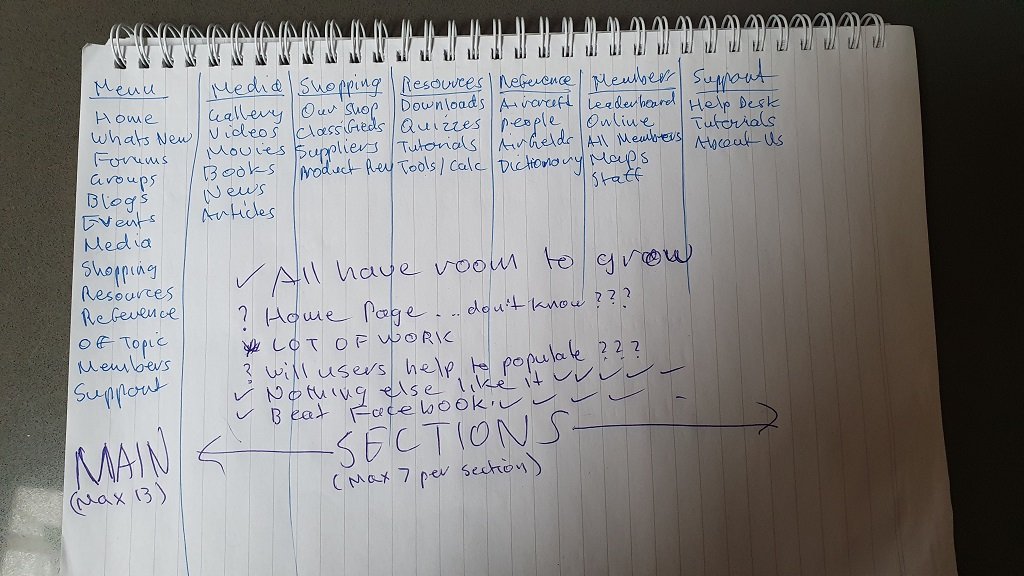 Menu
Home
Whats New
Forums
Groups
Blogs
Events
Media
Shopping
Resources
Reference
Off Topic
Members
Support
MAIN
(Max 13)
Media
Gallery
Videos
Movies
Books
News
Articles
Shopping
Our Shop
Classifieds
Suppliers
Product Rev
Resources
Downloads
Quizzes
Tutorials
Tools/Calc
Reference
Aircraft
People
Airfields
Dictionary
Members
Leaderboard
Online
All Members
Maps
Staff
Support
Help Desk
Tutorials
About Us
✓ All have room to grow
? Home Page ... don't know ???
* LOT OF WORK
? will users help to populate ???
✓ Nothing else like it ✓✓✓✓
✓ Beat Facebook. ✓ ✓ ✓ ✓
SECTIONS
(Max 7 per section)